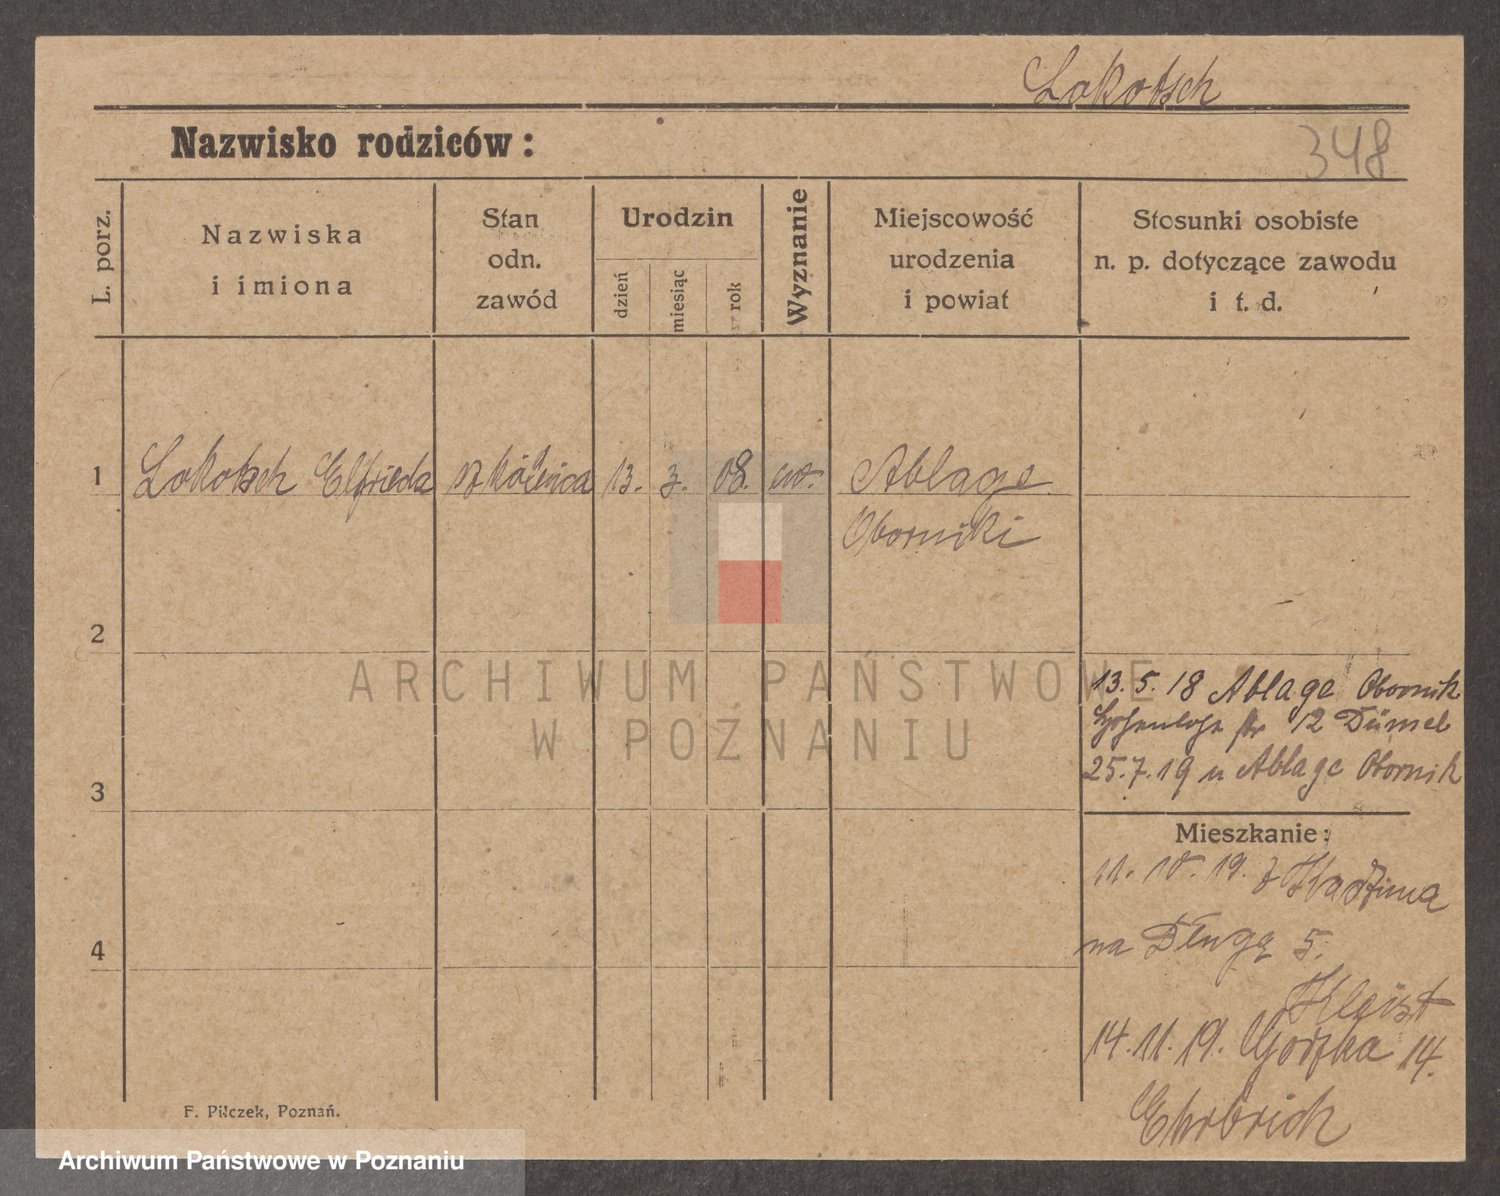 Lokotsch
Nazwisko rodziców:
348
L. porz.
Nazwiska
i imiona
Stan
odn.
zawód
Urodzin
dzień
miesiąc
rok
Wyznanie
Miejscowość
urodzenia
i powiat
Stosunki osobiste
n. p. dotyczące zawodu
i t. d.
1 Lokotsch Elfrieda 13. 3. 08. ew. Ablage
Oborniki
2
ARCHIWUM PAŃSTWOWE
W POZNANIU
13. 5. 18 Ablage Obornik
12 Dümel
25. 7. 19 n Ablage Obornik
3
Mieszkanie:
11. 10. 19. z
na Długą 5.
4
Kleist
14. 11. 19. 14.
Ehrbrich
F. Pilczek, Poznań.
Archiwum Państwowe w Poznaniu